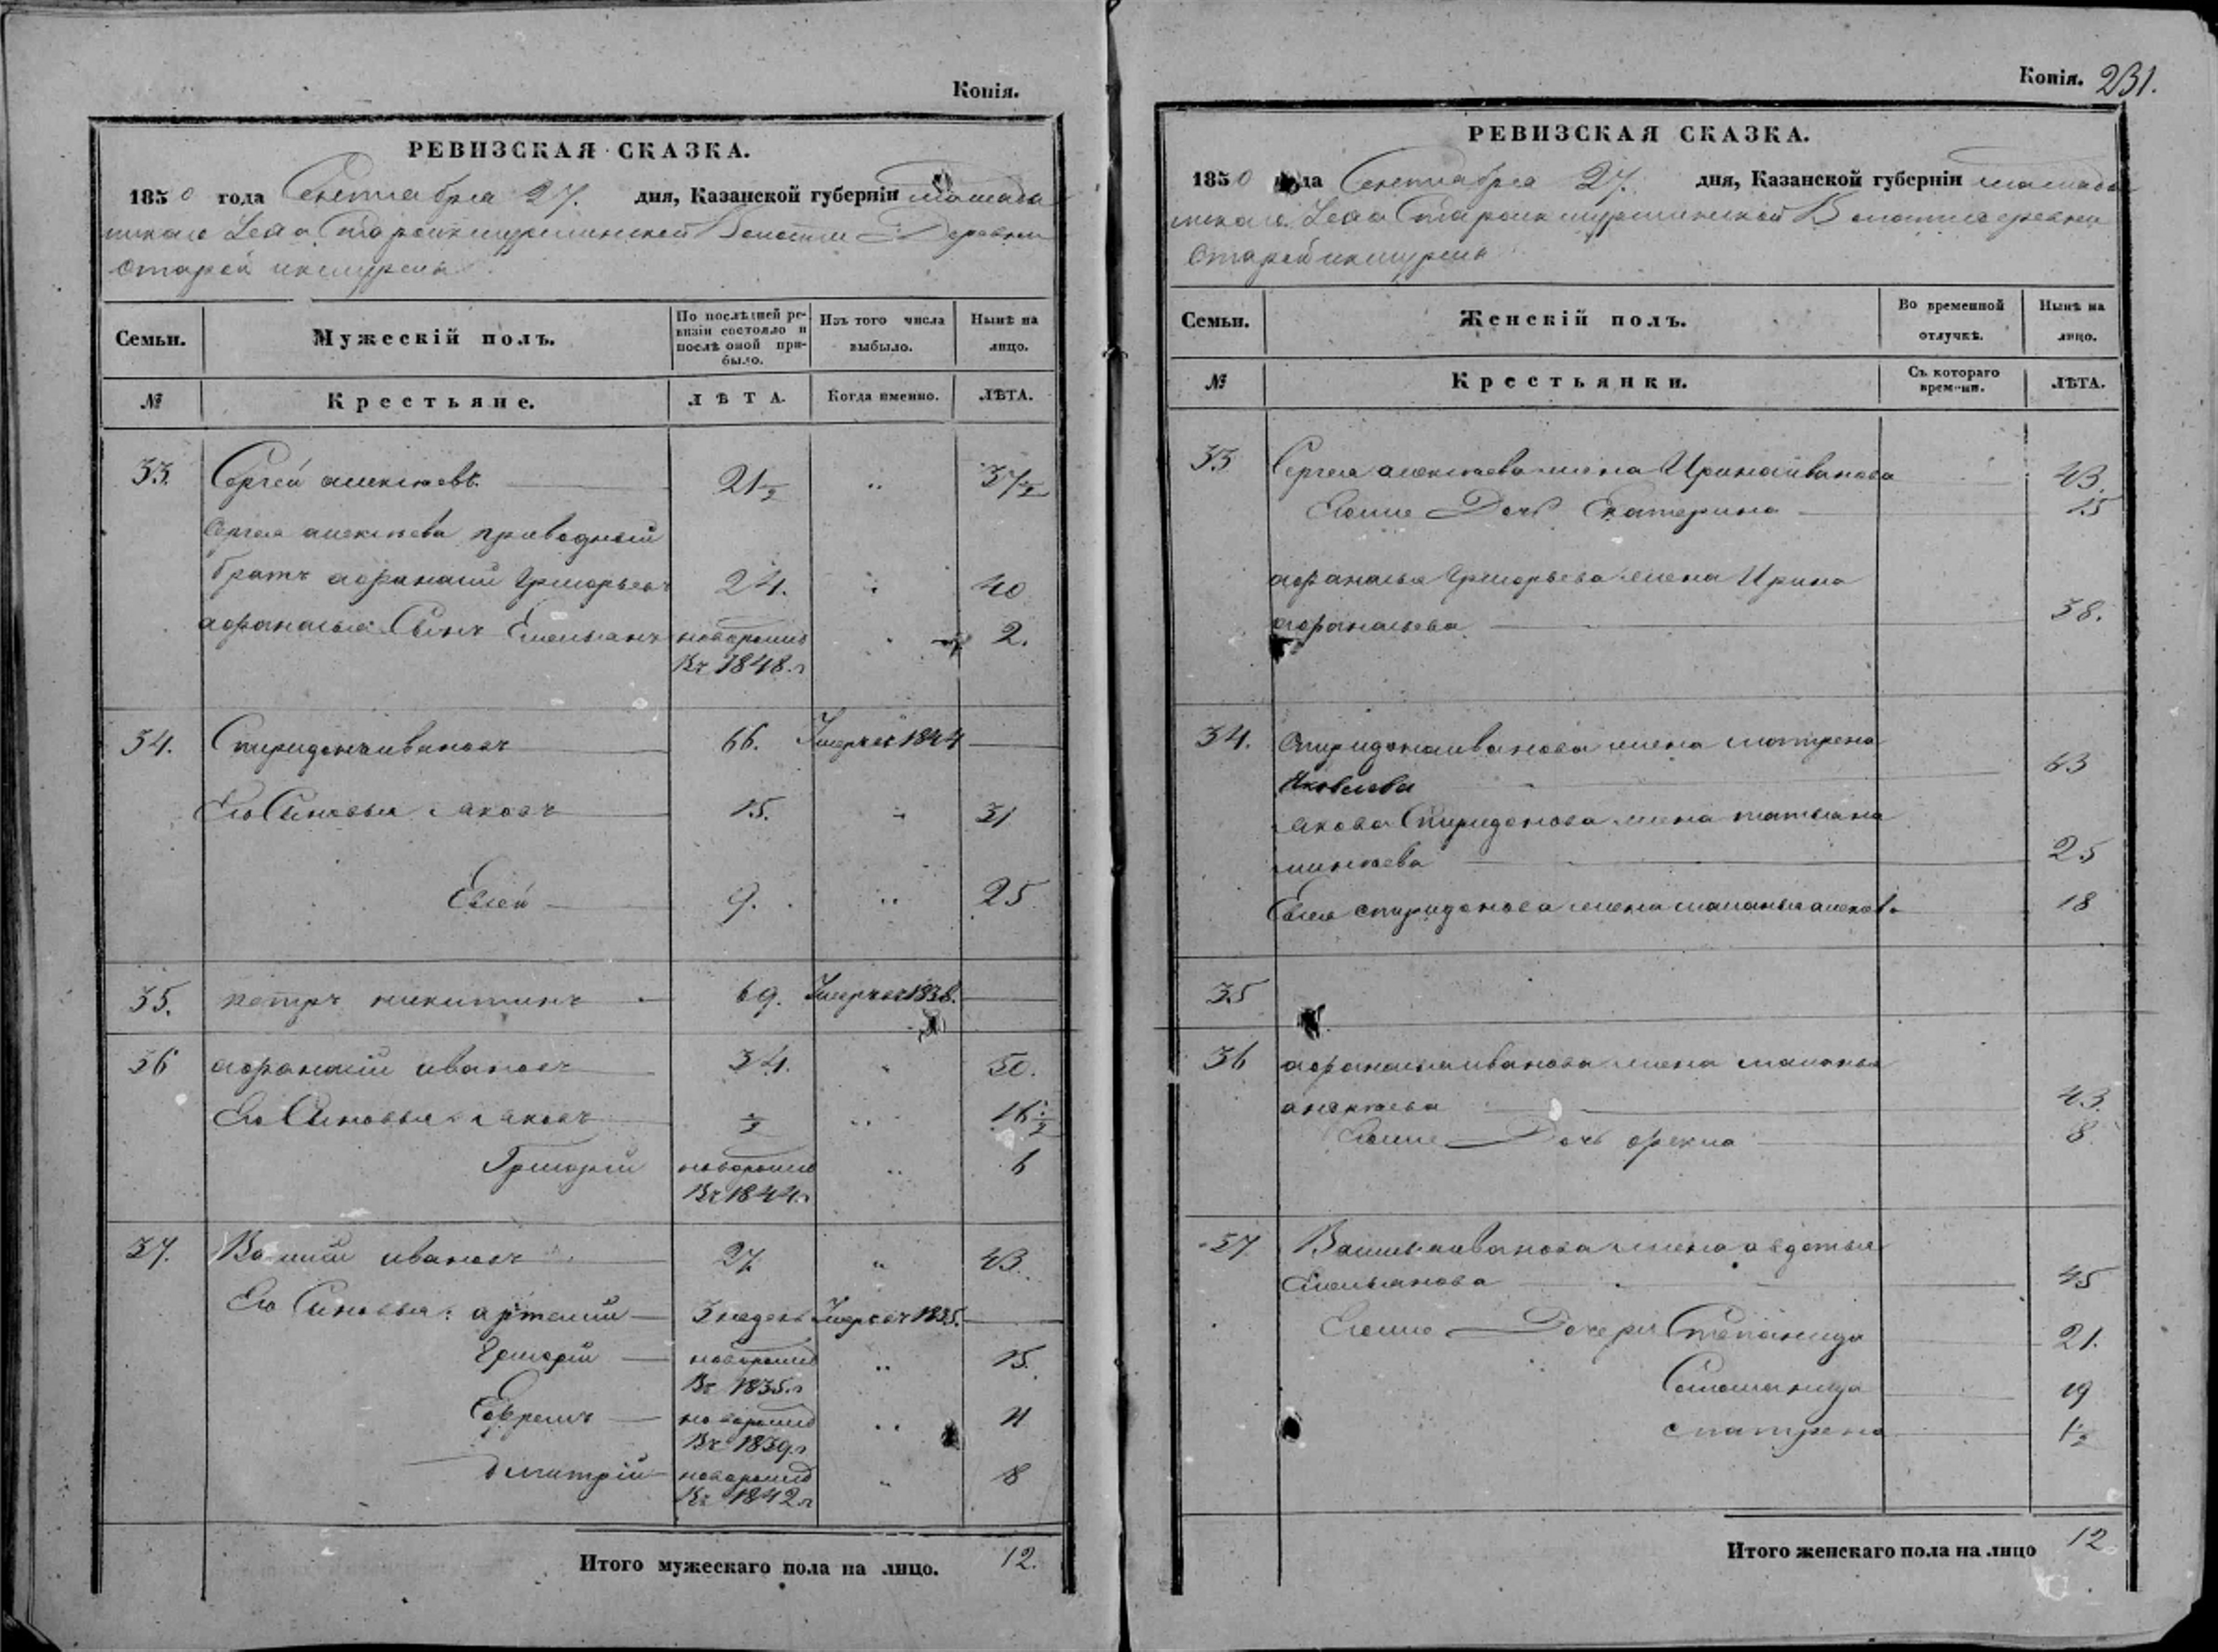 Копія.
РЕВИЗСКАЯ СКАЗКА.
1850 года Сентября 27. дня, Казанской губерніи мамады
шскаго Уезда Староикшурминской Волости Деревни
старой икшурмы
Семьи. Мужескій полъ. По послѣдней ревизіи состояло и послѣ оной прибыло. Изъ того числа выбыло. Нынѣ на лицо.
№ Крестьяне. ЛѢТА. Когда именно. ЛѢТА.
33. Сергей алексѣевъ 21½ „ 37½
Сергея алексѣева
братъ афанасий Григорьевъ 24. „ 40
афанасья Сынъ Емельянъ новорожд „ 2.
Въ 1848.г
34. Спиридонъ ивановъ 66. Умеръ въ 1844
Его Сыновья яковъ 15. „ 31
Евсей 9. „ 25
35. петръ никитинъ 69. Умеръ въ 1838.
36 афанасій ивановъ 34. „ 50.
Его Сыновья яковъ ½ „ 16½
Григорій новорожд „ 6
Въ 1844.г
37. Василий ивановъ 27. „ 43.
Его Сыновья: артемий 3 недель Умеръ въ 1835.
Григорій новорожд „ 15.
Въ 1835.г
Ефремъ новорожд „ 11
Въ 1839.г
дмитрій новорожд „ 8
Въ 1842.г
Итого мужескаго пола на лицо. 12.
Копія. 231.
РЕВИЗСКАЯ СКАЗКА.
1850 года Сентября 27. дня, Казанской губерніи мамады
шскаго Уезда Староикшурминской Волости деревни
Старой икшурмы
Семьи. Женскій полъ. Во временной отлучкѣ. Нынѣ на лицо.
№ Крестьянки. Съ котораго времени. ЛѢТА.
33 Сергея алексѣева жена Ирина иванова 43.
Егоже Дочь Екатерина 15
афанасья Григорьева жена Ирина
афанасьева 38.
34. Спиридона иванова жена матрена
Яковлева 63
якова Спиридонова жена татьяна
25
Евсея спиридонова жена маланья 18
35
36 афанасья иванова жена маланья
43.
Егоже Дочь фекла 8.
37 Василья иванова жена авдотья
Емельянова 45
Егоже Дочери Степанида 21.
Соломанида 19
матрена 1½
Итого женскаго пола на лицо 12.